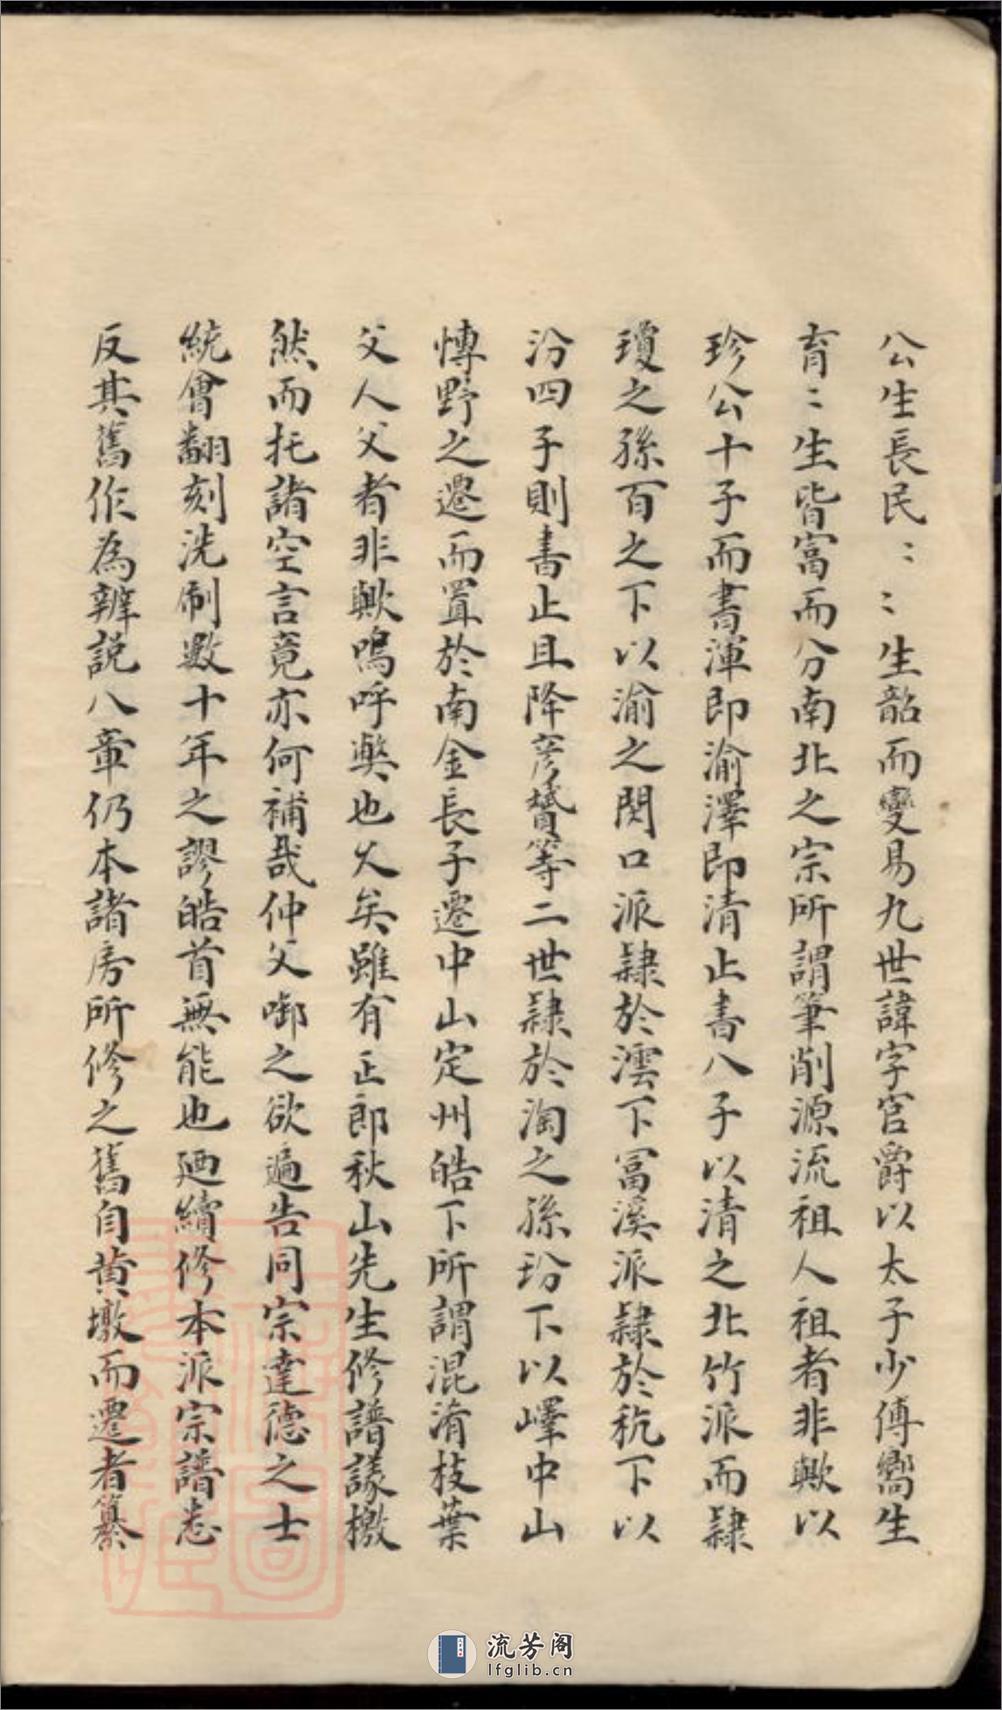 公生長民：：生韶而變易九世諱字官爵以太子少傅嚮生
育：生皆富而分南北之宗所謂筆削源流祖人祖者非歟以
珍公十子而書渾即渝澤即清止書八子以清之北竹派而隸
瓊之孫百之下以渝之閔口派隸於澐下冨溪派隸於秔下以
汾四子則書止且降彥贇等二世隸於淘之孫玢下以嶧中山
博野之遷而置於南金長子遷中山定州皓下所謂混淆枝葉
父人父者非歟嗚呼獘也久矣雖有正郎秋山先生修譜議檄
然而托諸空言竟亦何補哉仲父啣之欲遍告同宗達德之士
統會翻刻洗刷數十年之謬皓首無能也廼續修本派宗譜志
反其舊作為辨説八章仍本諸房所修之舊自黄墩而遷者纂
流芳阁
lfglib.cn